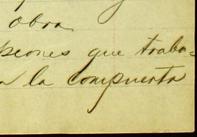 obra
peones que traba-
a la compuerta